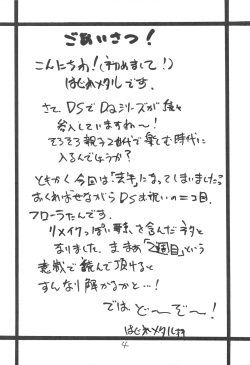 ごあいさつ！
こんにちわ！（初めまして！）
はじめメタルです。
さて DSでDQシリーズが続々
参入していますね～！
そろそろ親子2代で楽しむ時代に
入るんでしょうか？
ともかく今回は「去年」になってしまいました
あくればせながらDSお祝いの二コ目。
フローラたんです。
リメイクっぽい要素を含んだネタと
なりました。ま、まあ「2週目」という
意識で読んで頂けると
すんなり解かるかと…！
では ど～ぞ～！
はじめメタル
4